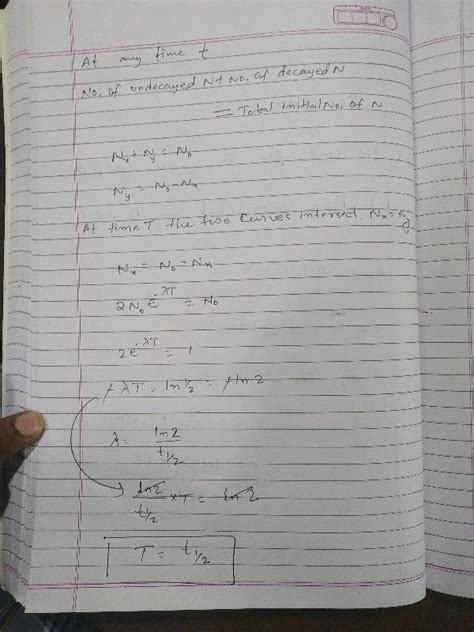 At any time t
No. of undecayed N + No. of decayed N
= Total initial No. of N
Nx + Ny = N0
Ny = N0 - Nx
At time T, the two curves intersect, Nx = Ny
Nx = N0 - Nx
2N0 e^-λT = N0
2e^-λT = 1
-λT = ln 1/2 = -ln 2
λ = ln2 / t1/2
ln2 / t1/2 × T = ln 2
T = t1/2